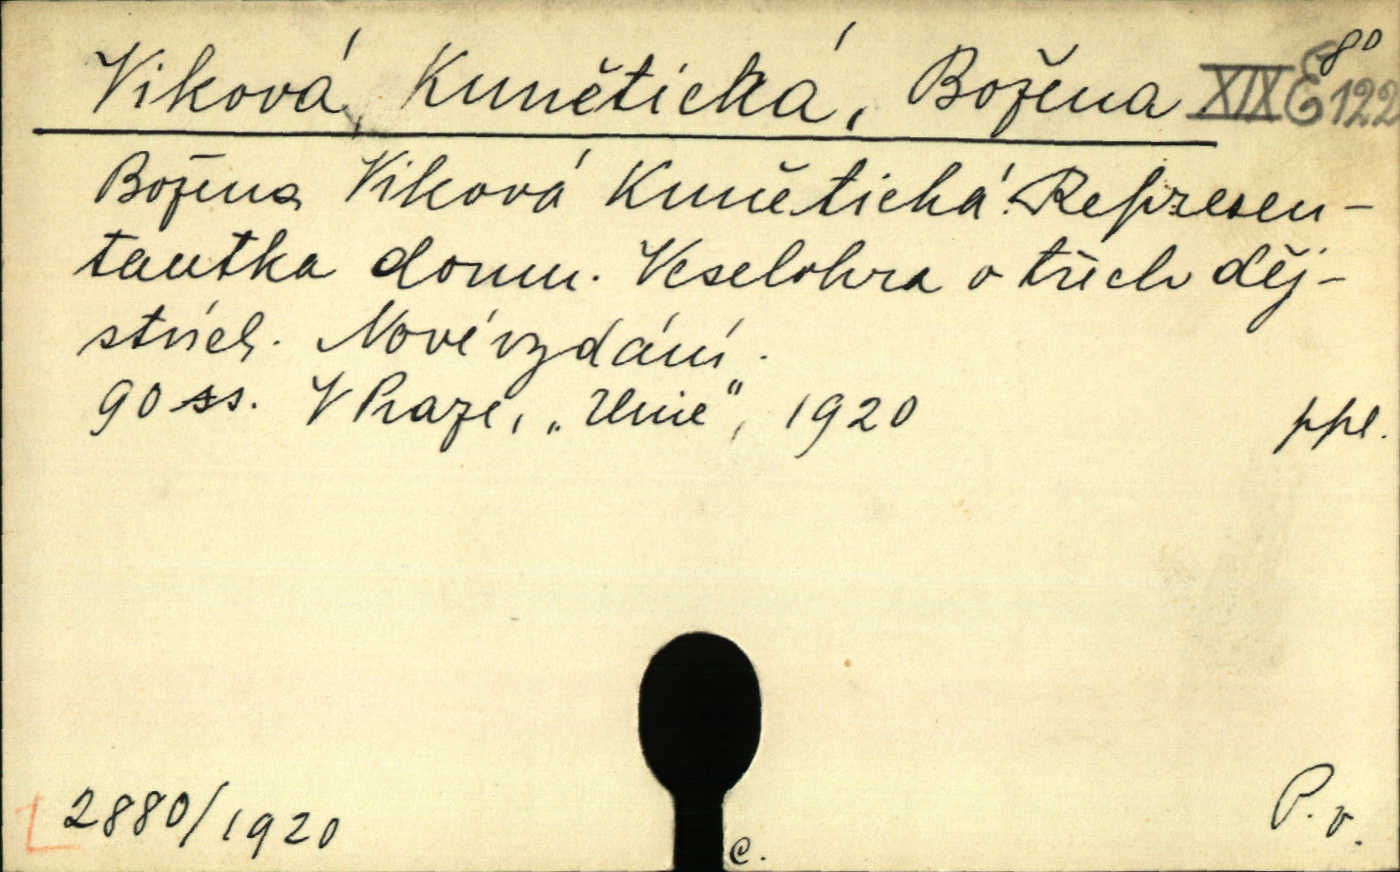 Viková, Kunětická, Božena XIX E 122 8°
Božena Viková Kunětická: Represen-
tantka domu. Veselohra o třech děj-
stvích. Nové vydání.
90 ss. V Praze, „Unie“, 1920 ppl.
2880/1920 P. v.
c.